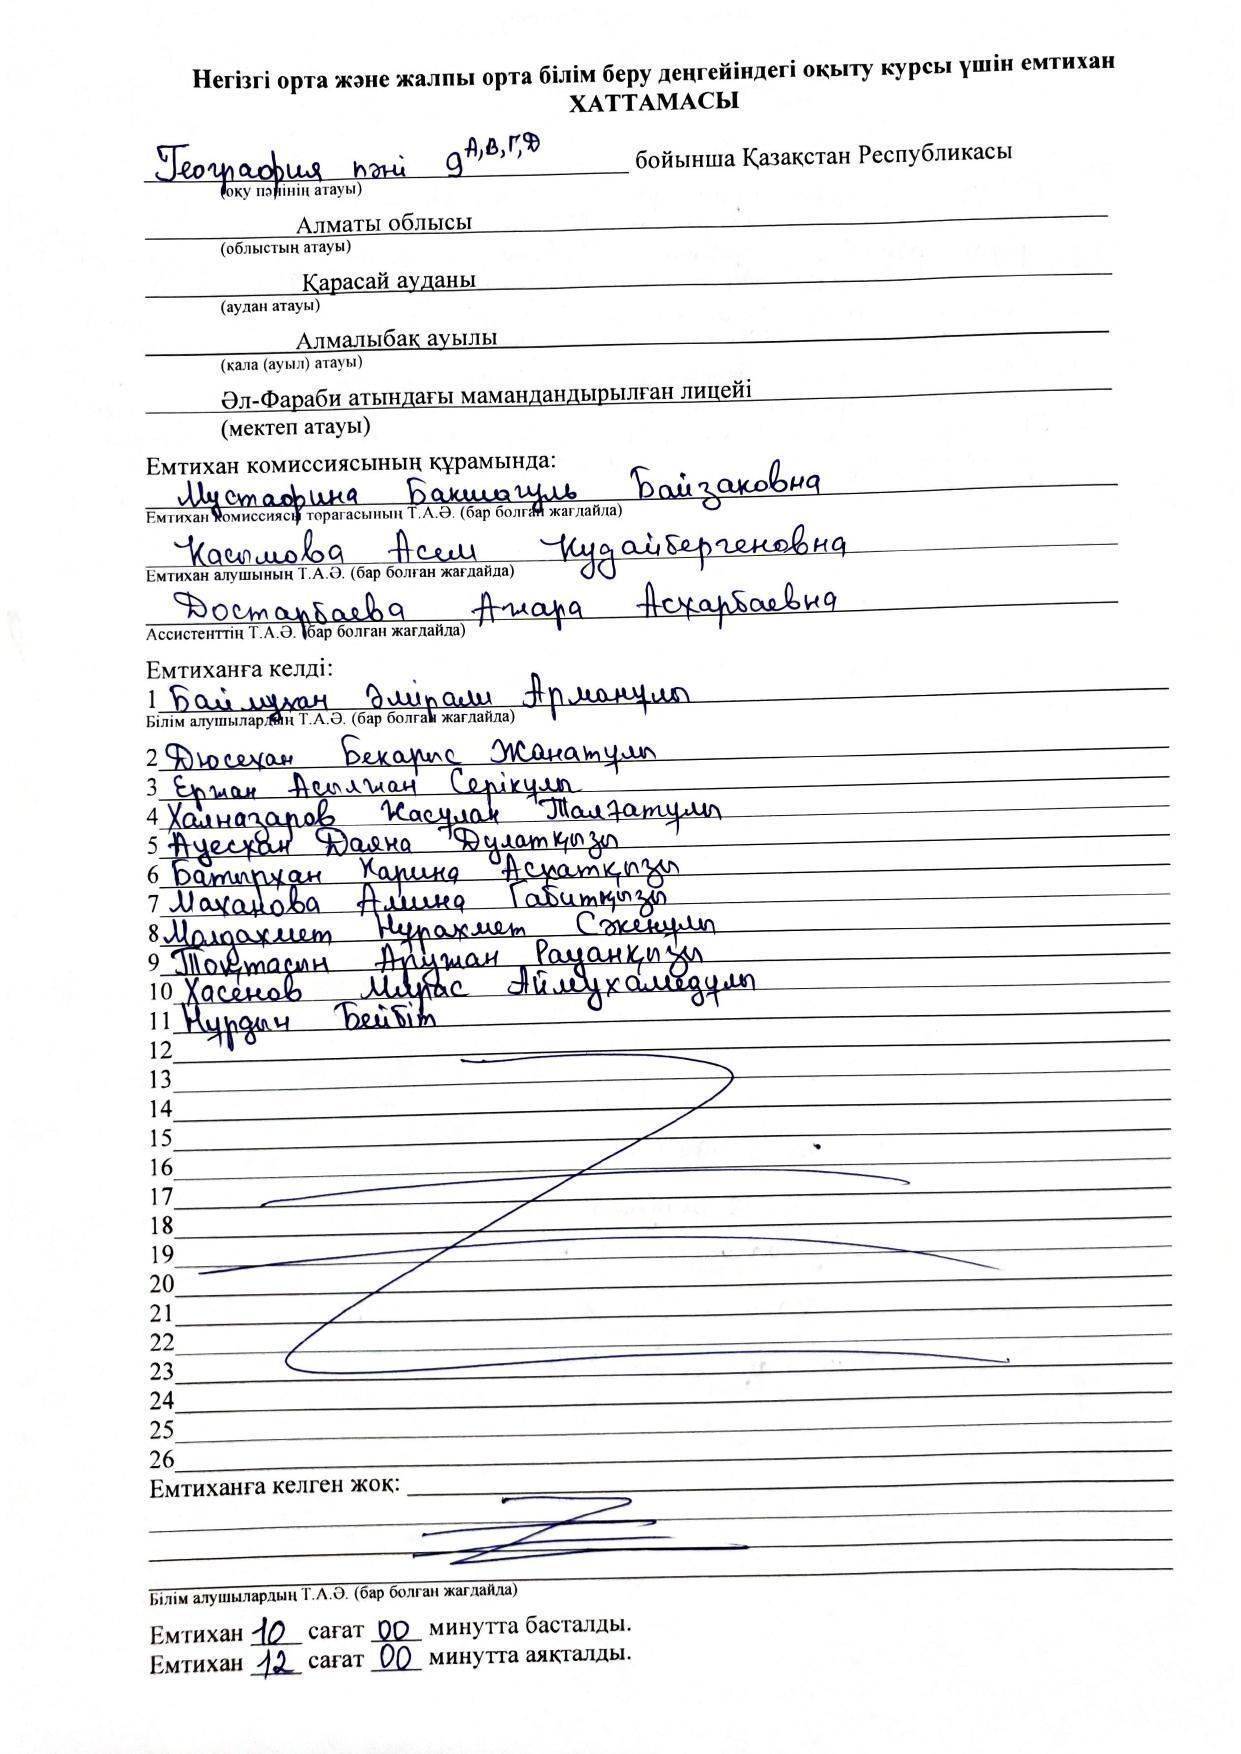 Негізгі орта және жалпы орта білім беру деңгейіндегі оқыту курсы үшін емтихан
ХАТТАМАСЫ
География пәні 9А,В,Г,Д бойынша Қазақстан Республикасы
(оқу пәнінің атауы)
Алматы облысы
(облыстың атауы)
Қарасай ауданы
(аудан атауы)
Алмалыбақ ауылы
(қала (ауыл) атауы)
Әл-Фараби атындағы мамандандырылған лицейі
(мектеп атауы)
Емтихан комиссиясының құрамында:
Мустафина Бакшагуль Байзаковна
Емтихан комиссиясы торағасының Т.А.Ә. (бар болған жағдайда)
Касымова Асем Кудайбергеновна
Емтихан алушының Т.А.Ә. (бар болған жағдайда)
Достарбаева Ажара Асхарбаевна
Ассистенттің Т.А.Ә. (бар болған жағдайда)
Емтиханға келді:
1 Баймухан Әмірали Арманұлы
Білім алушылардың Т.А.Ә. (бар болған жағдайда)
2 Дюсехан Бекарыс Жанатұлы
3 Ержан Асылжан Серікұлы
4 Халназаров Жасулан Талғатұлы
5 Ауесхан Даяна Дулатқызы
6 Батырхан Карина Асхатқызы
7 Маханова Амина Габитқызы
8 Молдахмет Нурахмет Сәкенұлы
9 Тоқтасын Аружан Рауанқызы
10 Хасенов Мирас Аймухамедұлы
11 Нұрдын Бейбіт
12
13
14
15
16
17
18
19
20
21
22
23
24
25
26
Емтиханға келген жоқ:
Білім алушылардың Т.А.Ә. (бар болған жағдайда)
Емтихан 10 сағат 00 минутта басталды.
Емтихан 12 сағат 00 минутта аяқталды.